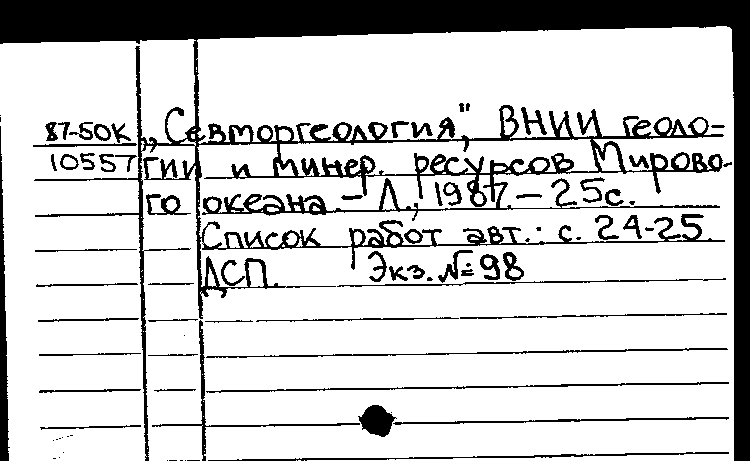 87-50к „Севморгеология", ВНИИ геоло=
10557 гии и минер. ресурсов Мирово-
го океана. – Л., 1987. – 25с.
Список работ авт.: с. 24-25.
ДСП. Экз. № 98